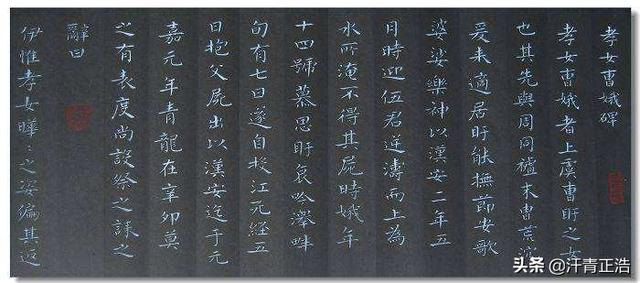 孝女曹娥碑
孝女曹娥者上虞曹盱之女
也其先與周同末荒
爰来適居盱能撫節安歌
婆娑樂神以漢安二年五
月時迎伍君逆濤而上為
水所淹不得其屍時娥年
十四號慕思盱哀吟澤畔
旬有七日遂自投江死經五
日抱父屍出以漢安迄于元
嘉元年青龍在辛卯莫
之有表度尚設祭之誄之
辭曰
伊惟孝女曄〻之姿偏其返
头条 @汗青正浩